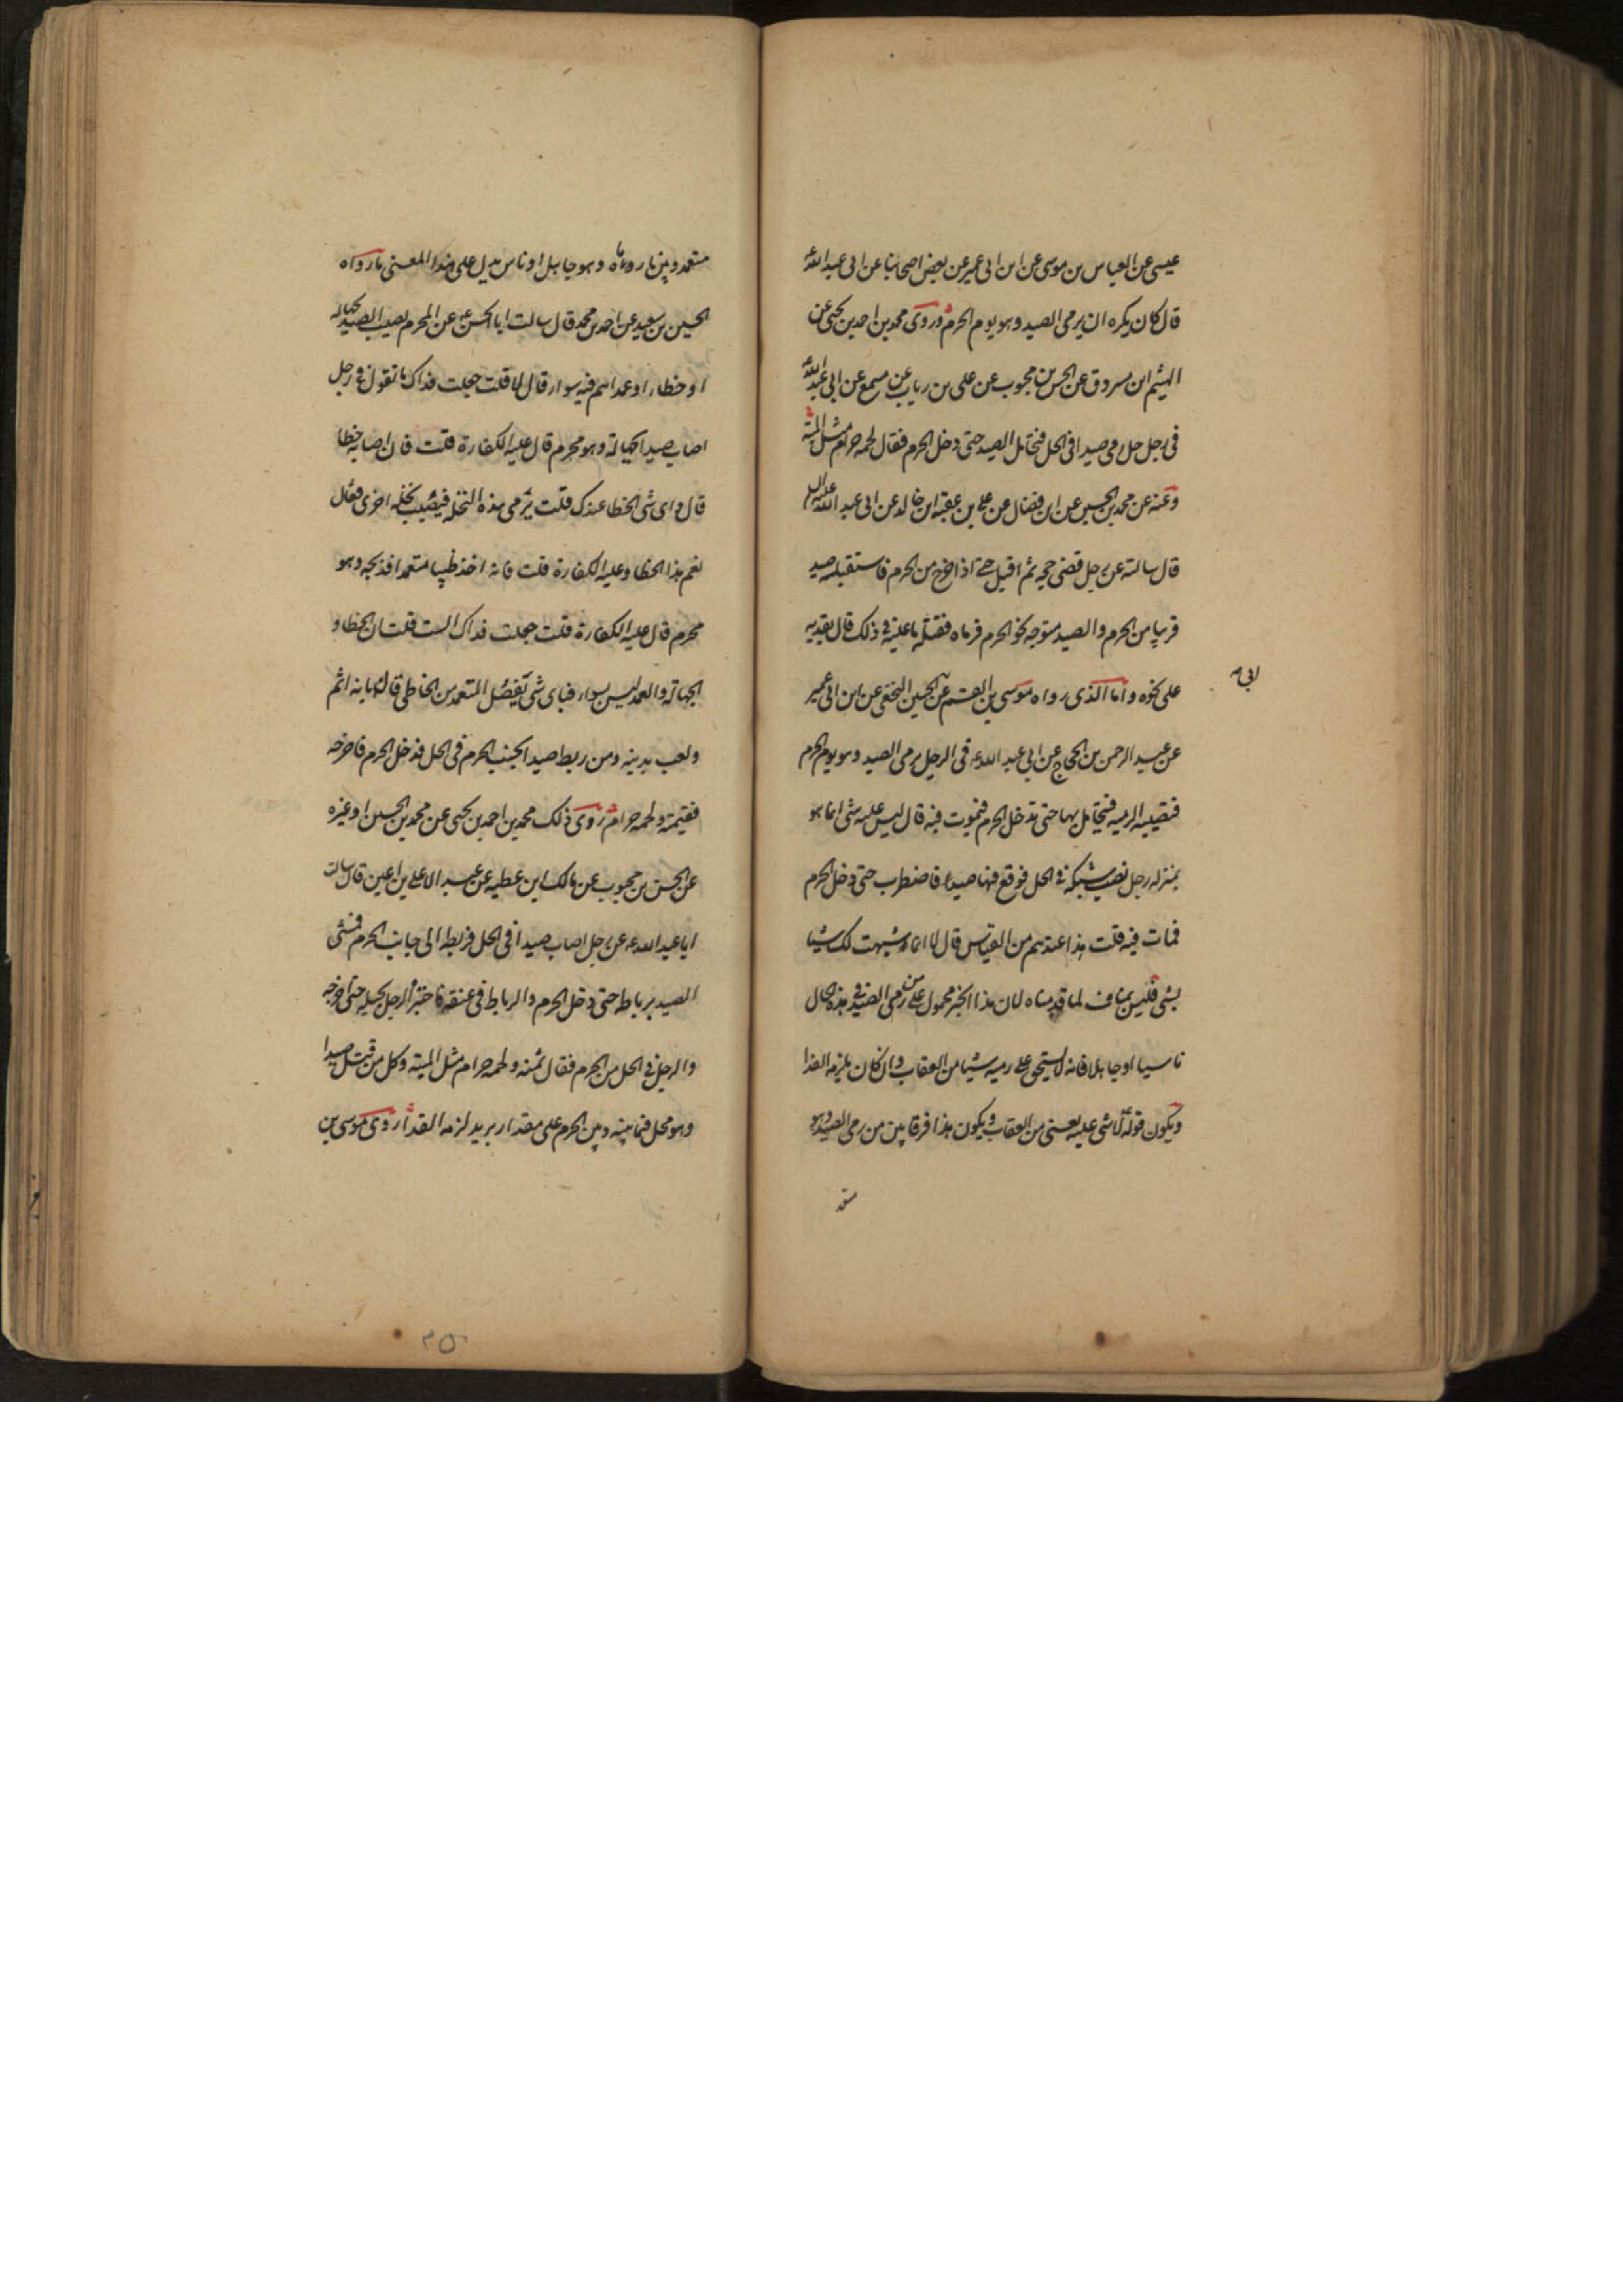 عيسى عن العباس بن موسى عن ابن ابى عمير عن بعض اصحابنا عن ابى عبد الله
قال كان يكره ان يرمى الصيد وهو يوم الحرم وروى محمد بن احمد بن يحيى عن
الهيثم ابن مسروق عن الحسن بن محبوب عن على بن رياب عن مسمع عن ابى عبد الله
فى رجل حل رمى صيدا فى الحل فتحامل الصيد حتى دخل الحرم فقال لحمه حرام مثل الميتة
وعنه عن محمد بن الحسين عن ابن فضال عن على بن عقبه ابن خالد عن ابى عبد الله عليه السلم
قال سالته عن رجل قضى حجه ثم اقبل حتى اذا خرج من الحرم فاستقبله صيد
قريبا من الحرم والصيد متوجه نحو الحرم فرماه فقتله ما عليه فى ذلك قال يفديه
على نحوه واما الذى رواه موسى بن القسم عن الحسين النخعى عن ابن ابى عمير
ابى
عن عبد الرحمن بن الحجاج عن ابى عبد الله ع فى الرجل يرمى الصيد وهو يوم الحرم
فتصيبه الرميه فيتحامل بها حتى تدخل الحرم فيموت فيه قال ليس عليه شى انما هو
بمنزله رجل نصب شبكه فى الحل فوقع فيها صيد فاضطرب حتى دخل الحرم
فمات فيه قلت هذا عندهم من القياس قال لا انما شبهت لك شيا
بشى فليس بمناف لما قدمناه لان هذا الخبر محمول على من رمى الصيد فى هذه الحال
ناسيا او جاهلا فانه لا يستحق على رميه شيا من العقاب وان كان يلزمه الفدا
ويكون قوله لا شى عليه يعنى من العقاب ويكون هذا فرقا بين من رمى الصيد وهو
متعمد
متعمد وبين ما رماه وهو جاهل او ناس يدل على هذا المعنى ما رواه
الحسين بن سعيد عن احمد بن محمد قال سالت ابا الحسن ع عن المحرم يصيب الصيد بجهاله
او خطاء او عمد اهم فيه سواء قال لا قلت جعلت فداك ما تقول فى رجل
اصاب صيدا بجهالة وهو محرم قال عليه الكفارة قلت فان اصابه خطا
قال واى شى الخطا عندك قلت يرمى هذه النخله فيصيب نخله اخرى فقال
نعم هذا الخطا وعليه الكفارة قلت فانه اخذ ظبيا متعمدا فذبحه وهو
محرم قال عليه الكفارة قلت جعلت فداك الست قلت ان الخطا و
الجهالة والعمد ليس بسواء فباى شى يفصل المتعمد من الخاطى قال بانه اثم
ولعب بدينه ومن ربط صيدا بجنب الحرم فى الحل فدخل الحرم فاخرجه
فقيمته ولحمه حرام روى ذلك محمد بن احمد بن يحيى عن محمد بن الحسين او غيره
عن الحسن بن محبوب عن مالك ابن عطيه عن عبد الاعلى بن اعين قال سالت
ابا عبد الله ع عن رجل اصاب صيدا فى الحل فربطه الى جانب الحرم فمشى
الصيد برباطه حتى دخل الحرم والرباط فى عنقه فاجتره الرجل بحبله حتى اخرجه
والرجل فى الحل من الحرم فقال ثمنه ولحمه حرام مثل الميته وكل من قتل صيدا
وهو محل فيما بينه وبين الحرم على مقدار بريد لزمه الفدا روى موسى بن